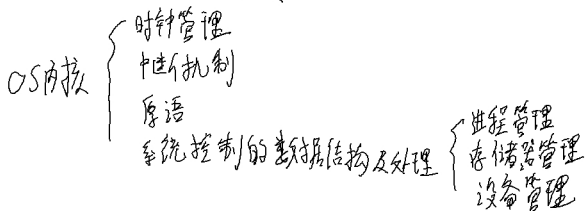 OS内核
时钟管理
中断机制
原语
系统控制的数据结构及处理
进程管理
存储器管理
设备管理